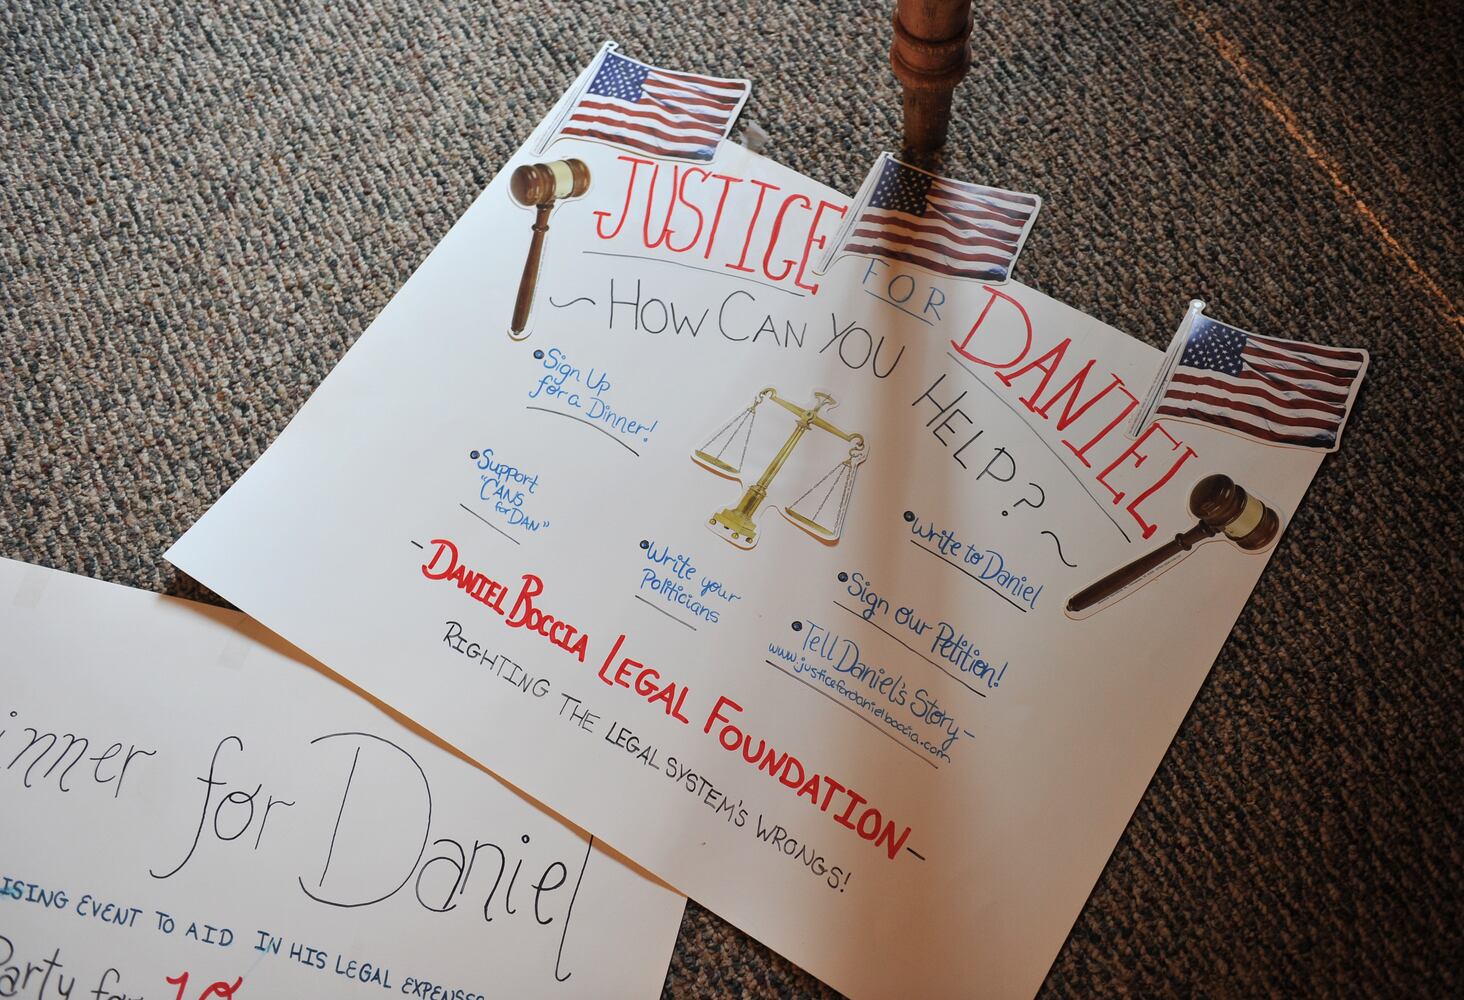 JUSTICE FOR DANIEL
~HOW CAN YOU HELP?~
•Sign Up
for a Dinner!
•Support
"CANS
for DAN"
•Write your
Politicians
•Write to Daniel
•Sign our Petition!
•Tell Daniel's Story-
www.justicefordanielboccia.com
-DANIEL BOCCIA LEGAL FOUNDATION-
RIGHTING THE LEGAL SYSTEM'S WRONGS!
inner for Daniel
ISING EVENT TO AID IN HIS LEGAL EXPENSES
Party for 10